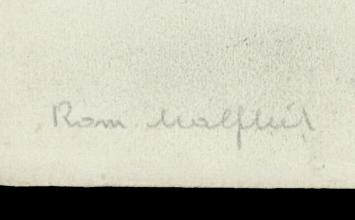 Rom Malfliet